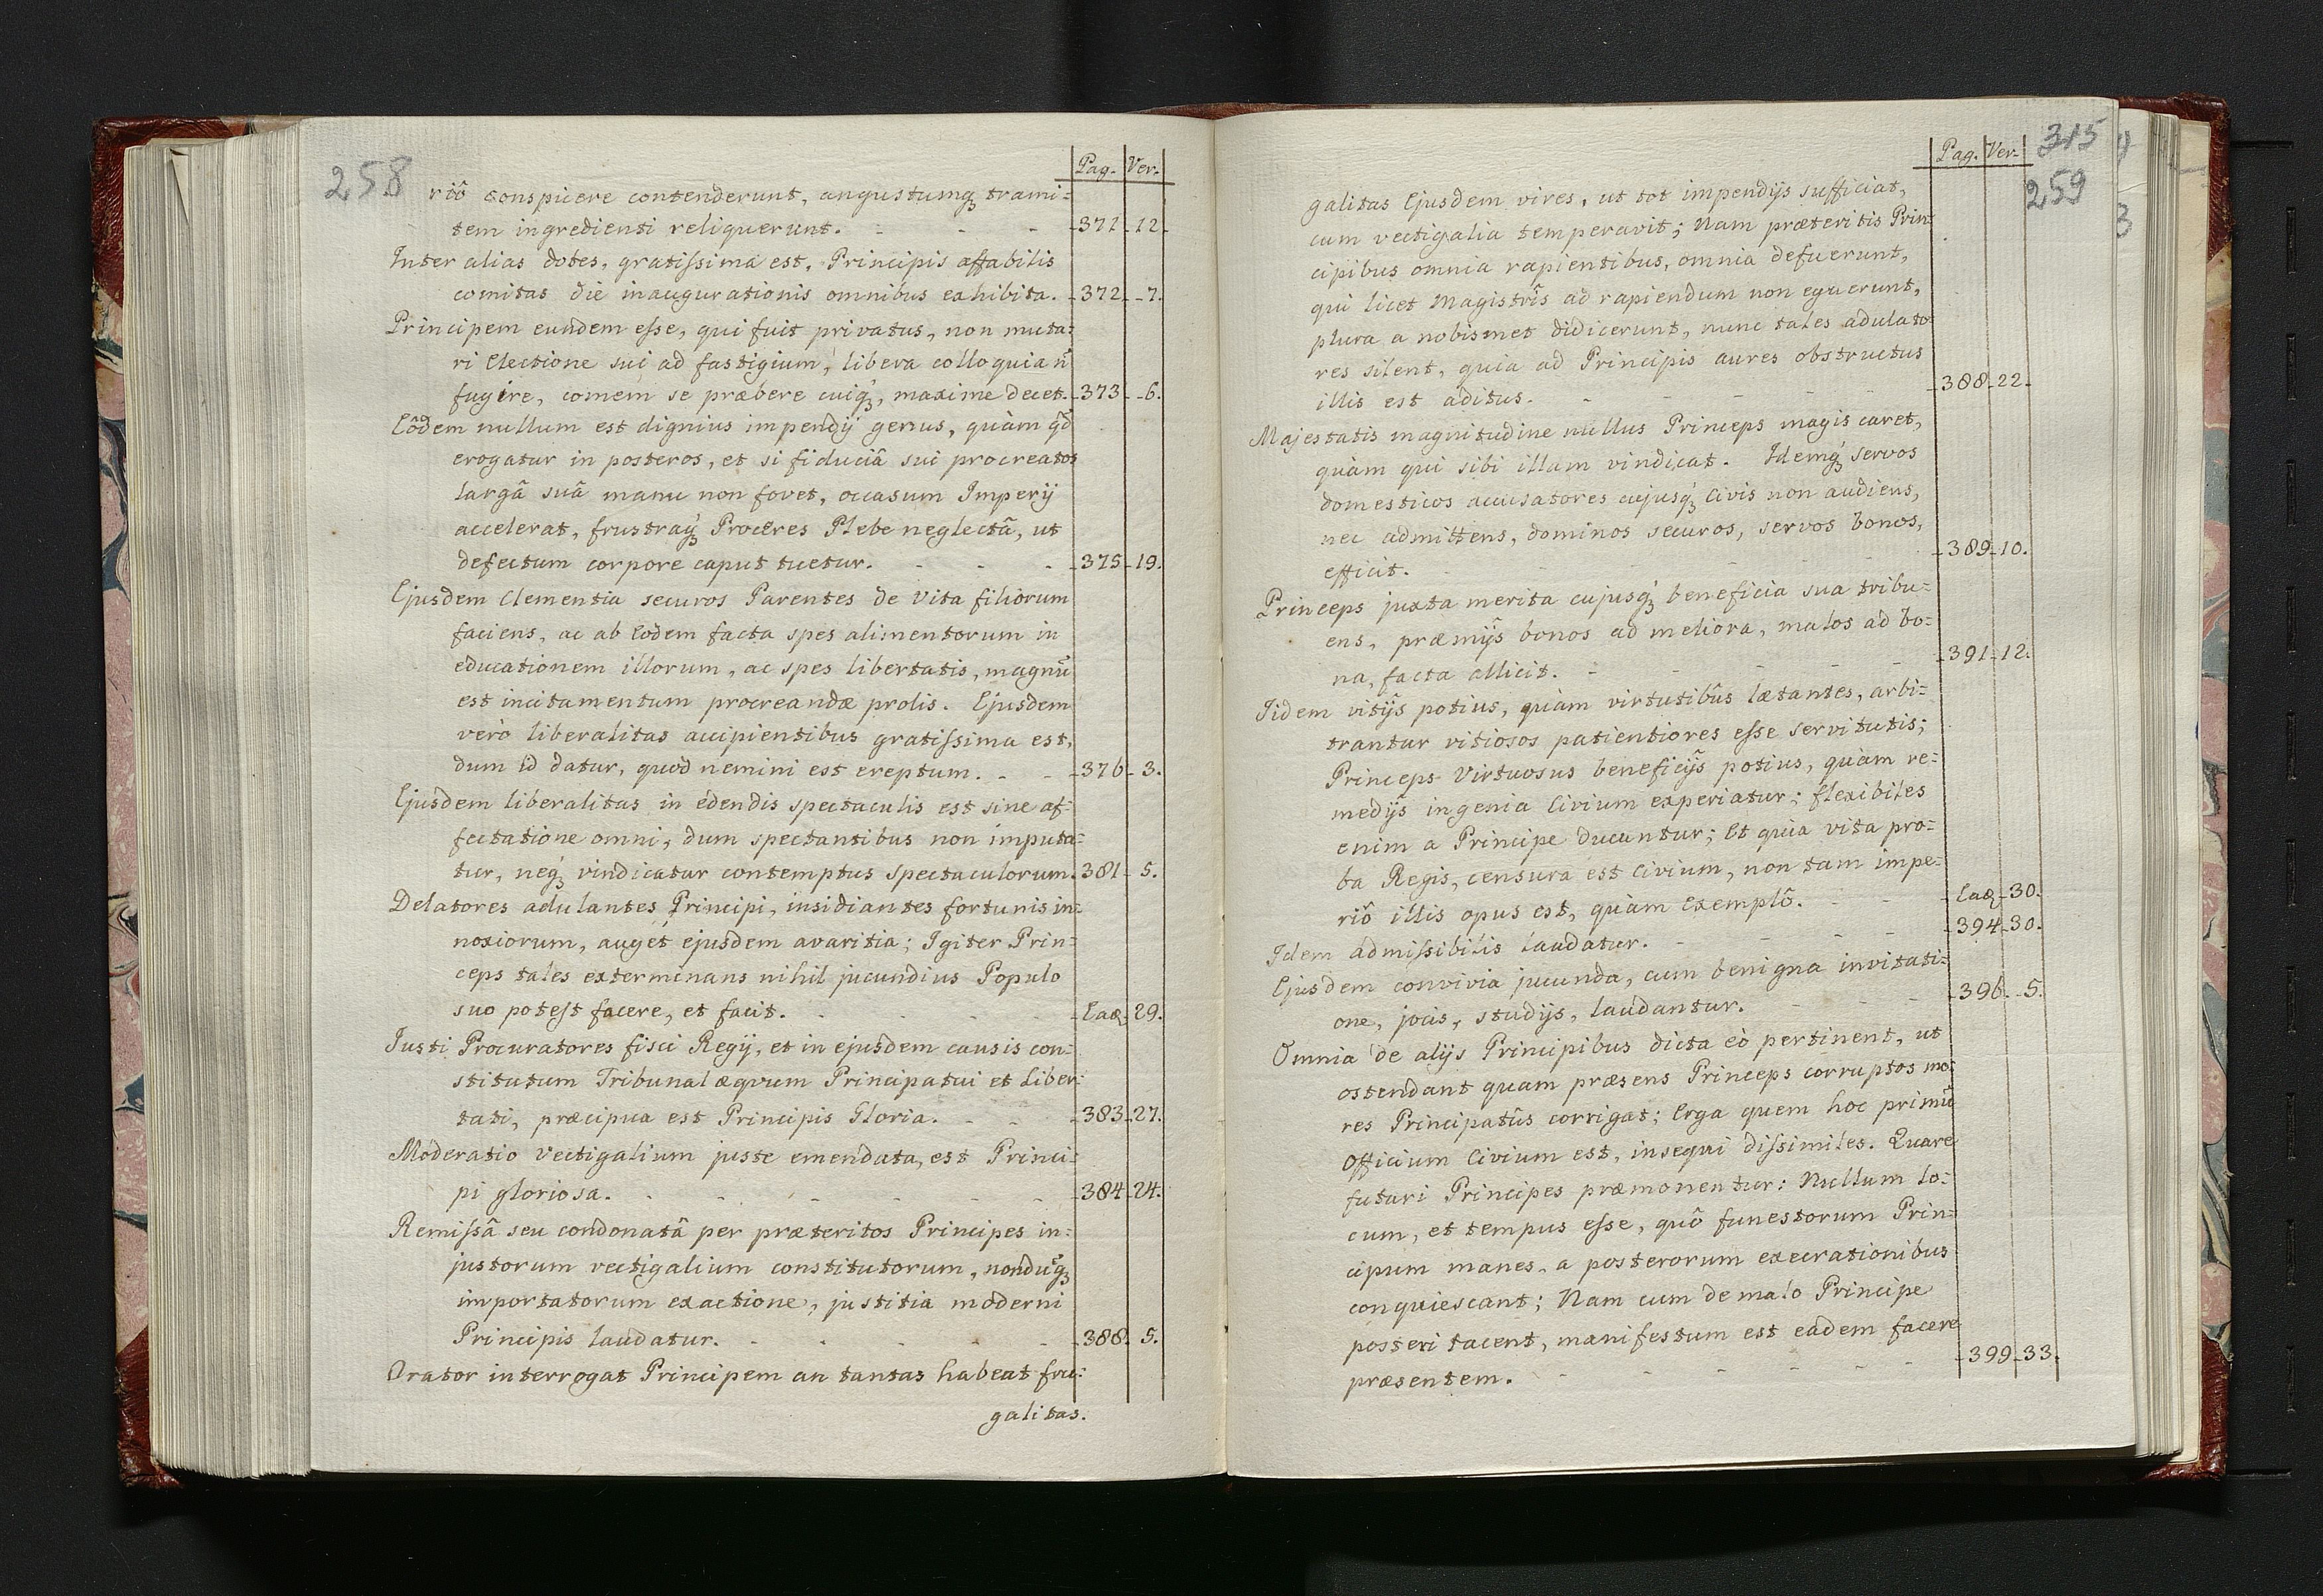 258
Pag. Ver.
riô conspicere contenderunt, angustumqꝫ trami=
tem ingredienti reliquerunt. - - - 371 - 12.
Inter alias dotes, gratiſsima est, Principis affabilis
comitas die inaugurationis omnibus exhibita. - 372 - 7.
Principem eundem eſse, qui fuit privatus, non muta=
ri Electione sui ad fastigium, libera colloquia n̄
fugire, comem se præbere cuiqꝫ, maxime decet. - 373 - 6.
Eôdem nullum est dignius impendÿ genus, quàm qd̄
erogatur in posteros, et si fiduciâ sui procreatos
largâ suâ manu non fovet, occasum Imperÿ
accelerat, frustraqꝫ Proceres Plebe neglectâ, ut
defectum corpore caput tuetur. - - - 375 - 19.
Ejusdem Clementia securos Parentes de Vita filiorum
faciens, ac ab Eodem facta spes alimentorum in
educationem illorum, ac spes libertatis, magnū
est incitamentum procreandæ prolis. Ejusdem
verò liberalitas accipientibus gratiſsima est,
dum id datur, quod nemini est ereptum. - - 376 - 3.
Ejusdem liberalitas in edendis spectaculis est sine af=
fectatione omni, dum spectantibus non imputa=
tur, neqꝫ vindicatur contemptus spectaculorum. 381 - 5.
Delatores adulantes Principi, insidiantes fortunis in=
noxiorum, auget ejusdem avaritia; Igiter Prin=
ceps tales exterminans nihil jucundius Populo
suo potest facere, et facit. - - - - Eaqꝫ 29.
Justi Procuratores fisci Regÿ, et in ejusdem causis con=
stitutum Tribunal æqvum Principatui et Liber=
tati, præcipua est Principis Gloria. - - 383 - 27.
Moderatio Vectigalium juste emendata, est Princi=
pi gloriosa. - - - - - - 384 - 24.
Remiſsâ seu condonatâ per præteritos Principes in=
justorum vectigalium constitutorum, nondūqꝫ
importatorum exactione, justitia moderni
Principis laudatur. - - - - - 388 - 5.
Orator interrogat Principem an tantas habeat fru=
galitas.
315
259
Pag. Ver.
galitas Ejusdem vires, ut tot impendÿs sufficiat,
cum vectigalia temperavit; Nam præteritis Prin=
cipibus omnia rapientibus, omnia defuerunt,
qui licet Magistrîs ad rapiendum non eguerunt,
plura a nobismet didicerunt, nunc tales adulato=
res silent, quia ad Principis aures obstructus
illis est aditus. - - - - - 388 - 22.
Majestatis magnitudine nullus Princeps magis caret,
quàm qui sibi illam vindicat. Idemqꝫ servos
domesticos accusatores cujusqꝫ Civis non audiens,
nec admittens, dominos securos, servos bonos,
efficit. - - - - - - 389 - 10.
Princeps juxta merita cujusqꝫ beneficia sua tribu=
ens, præmÿs bonos ad meliora, malos ad bo=
na, facta allicit. - - - - - 391 - 12.
Iidem vitÿs potius, quàm virtutibûs lætantes, arbi=
trantur vitiosos patientiores eſse servitutis;
Princeps Virtuosus beneficÿs potius, quàm re=
medÿs ingenia Civium experiatur; flexibiles
enim a Principe ducuntur; Et quia vita pro=
ba Regis, censura est Civium, non tam impe=
riô illis opus est, quàm Exemplô. - - Eaqꝫ - 30.
Idem admiſsibilis laudatur. - - - - 394 - 30.
Ejusdem convivia jucunda, cum benigna invitati=
one, jocis, studÿs, laudantur. - - - 396 - 5.
Omnia de alÿs Principibus dicta eò pertinent, ut
ostendant quam præsens Princeps corruptos mo=
res Principatûs corrigat; Erga quem hoc primū
Officium Civium est, insequi diſsimiles. Quare
futuri Principes præmonentur: Nullum lo=
cum, et tempus eſse, quô funestorum Prin=
cipum manes, a posterorum execrationibus
conquiescant; Nam cum de malo Principe
posteri tacent, manifestum est eadem facere
præsentem. - - - - - - 399 - 33.